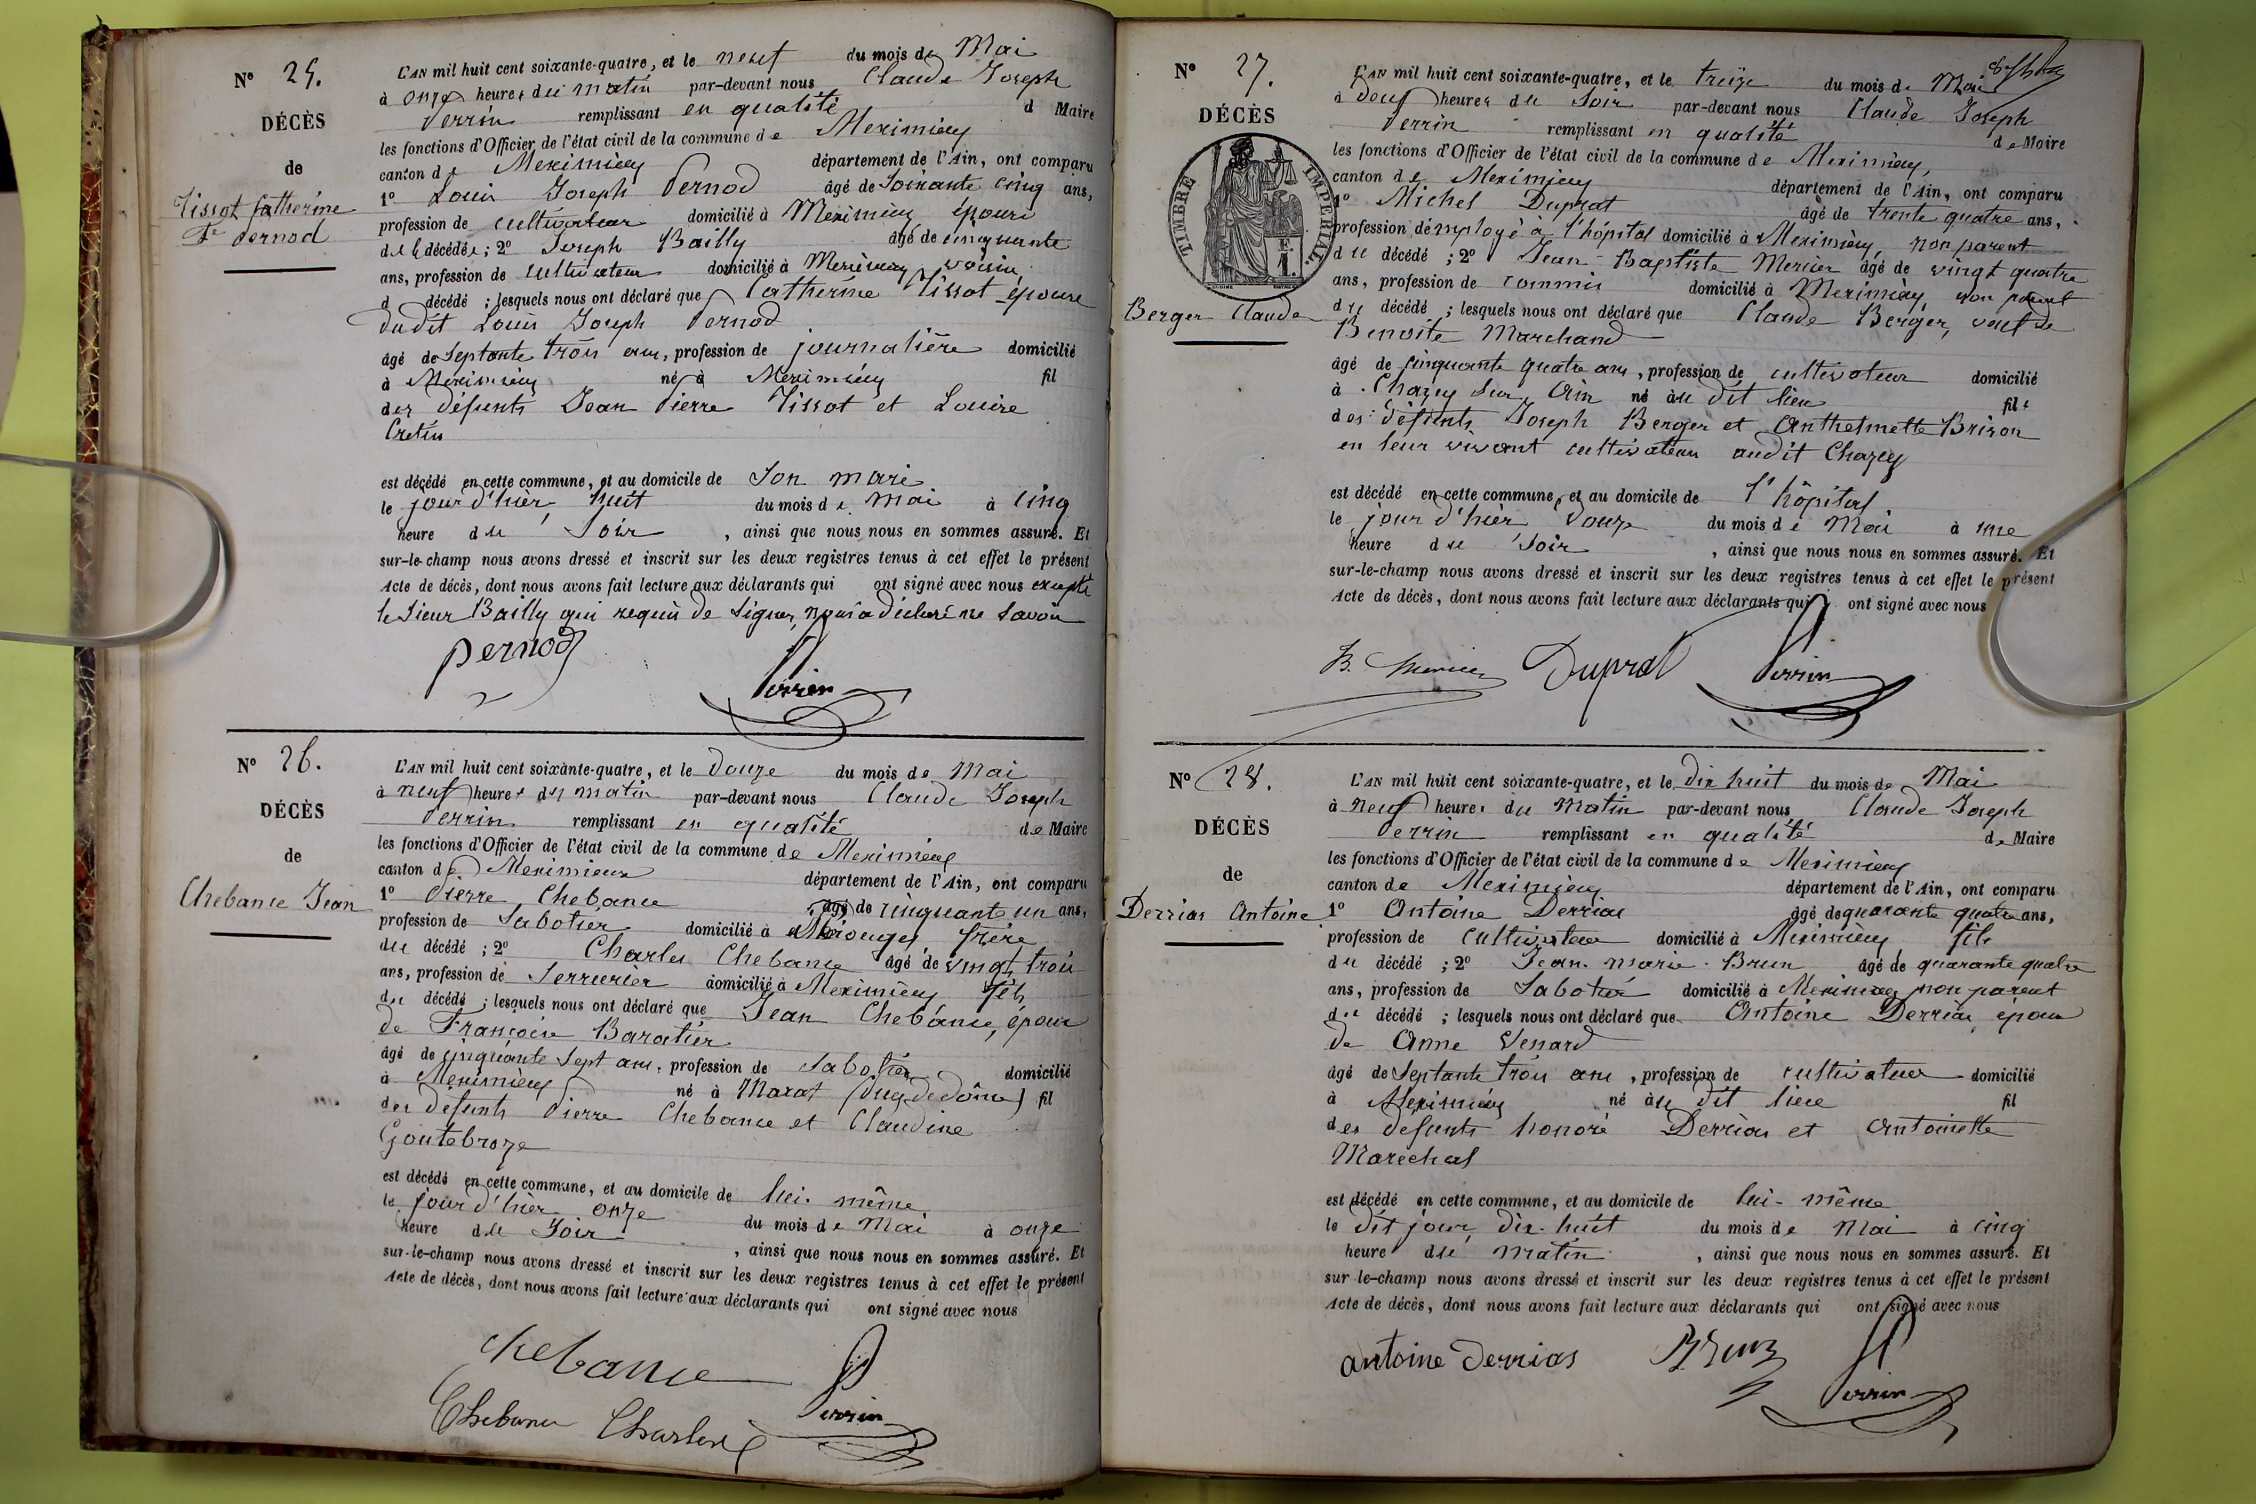 N° 25.
DÉCÈS
de
Tissot Catherine
Fe Pernod
L'AN mil huit cent soixante-quatre, et le neuf du mois de Mai
à onze heures du matin par-devant nous Claude Joseph
Perrin remplissant en qualité d Maire
les fonctions d'Officier de l'état civil de la commune de Meximieux
canton de Meximieux département de l'Ain, ont comparu
1° Louis Joseph Pernod âgé de Soixante cinq ans,
profession de cultivateur domicilié à Meximieux époux
de la décédée ; 2° Joseph Bailly âgé de cinquante
ans, profession de cultivateur domicilié à Meximieux voisin
d décédé ; lesquels nous ont déclaré que Catherine Tissot épouse
dudit Louis Joseph Pernod
âgé de Septante trois ans, profession de journalière domicilié
à Meximieux né à Meximieux fil
des défunts Jean Pierre Tissot et Louise
Cretin
est décédé en cette commune, et au domicile de Son mari
le jour d'hier huit du mois de mai à cinq
heure du Soir , ainsi que nous nous en sommes assuré. Et
sur-le-champ nous avons dressé et inscrit sur les deux registres tenus à cet effet le présent
Acte de décès, dont nous avons fait lecture aux déclarants qui ont signé avec nous excepté
le Sieur Bailly qui requis de signer, nous a déclaré ne savoir
Pernod
Perrin
N° 26.
DÉCÈS
de
Chebance Jean
L'AN mil huit cent soixante-quatre, et le douze du mois de Mai
à neuf heures du matin par-devant nous Claude Joseph
Perrin remplissant en qualité de Maire
les fonctions d'Officier de l'état civil de la commune de Meximieux
canton de Meximieux département de l'Ain, ont comparu
1° Pierre Chebance âgé de cinquante un ans,
profession de Sabotier domicilié à Pérouges frère
du décédé ; 2° Charles Chebance âgé de vingt trois
ans, profession de Serrurier domicilié à Meximieux fils
du décédé ; lesquels nous ont déclaré que Jean Chebance, époux
de Françoise Baratier
âgé de cinquante Sept ans, profession de Sabotier domicilié
à Meximieux né à Marat (Puy de dôme) fil
des défunts Pierre Chebance et Claudine
Goutebroze
est décédé en cette commune, et au domicile de lui-même
le jour d'hier onze du mois de Mai à onze
heure du Soir , ainsi que nous nous en sommes assuré. Et
sur-le-champ nous avons dressé et inscrit sur les deux registres tenus à cet effet le présent
Acte de décès, dont nous avons fait lecture aux déclarants qui ont signé avec nous
Chebance
Chebance Charles
Perrin
N° 27.
DÉCÈS
TIMBRE IMPÉRIAL.
Berger Claude
L'AN mil huit cent soixante-quatre, et le treize du mois de Mai
à deux heures du Soir par-devant nous Claude Joseph
Perrin remplissant en qualité de Maire
les fonctions d'Officier de l'état civil de la commune de Meximieux,
canton de Meximieux département de l'Ain, ont comparu
1° Michel Duprat âgé de trente quatre ans,
profession d'employé à l'hôpital domicilié à Meximieux, non parent
du décédé ; 2° Jean-Baptiste Mercier âgé de vingt quatre
ans, profession de commis domicilié à Meximieux non parent
du décédé ; lesquels nous ont déclaré que Claude Berger, veuf de
Benoite Marchand
âgé de cinquante quatre ans, profession de cultivateur domicilié
à Chazey sur Ain né au dit lieu fils
des défunts Joseph Berger et Anthelmette Brison
en leur vivant cultivateurs audit Chazey
est décédé en cette commune, et au domicile de l'hôpital
le jour d'hier douze du mois de Mai à une
heure du Soir , ainsi que nous nous en sommes assuré. Et
sur-le-champ nous avons dressé et inscrit sur les deux registres tenus à cet effet le présent
Acte de décès, dont nous avons fait lecture aux déclarants qui ont signé avec nous
B. Mercier Duprat Perrin
N° 28.
DÉCÈS
de
Derrias Antoine
L'AN mil huit cent soixante-quatre, et le dix huit du mois de Mai
à neuf heures du Matin par-devant nous Claude Joseph
Perrin remplissant en qualité de Maire
les fonctions d'Officier de l'état civil de la commune de Meximieux
canton de Meximieux département de l'Ain, ont comparu
1° Antoine Derrias âgé de quarante quatre ans,
profession de cultivateur domicilié à Meximieux fils
du décédé ; 2° Jean-marie Brun âgé de quarante quatre
ans, profession de Sabotier domicilié à Meximieux non parent
du décédé ; lesquels nous ont déclaré que Antoine Derrias, époux
de Anne Venard
âgé de Septante trois ans, profession de cultivateur domicilié
à Meximieux né au dit lieu fil
des défunts honoré Derrias et Antoinette
Maréchal
est décédé en cette commune, et au domicile de lui-même
le dit jour, dix-huit du mois de Mai à cinq
heure du matin , ainsi que nous nous en sommes assuré. Et
sur-le-champ nous avons dressé et inscrit sur les deux registres tenus à cet effet le présent
Acte de décès, dont nous avons fait lecture aux déclarants qui ont signé avec nous
antoine derrias Brun Perrin